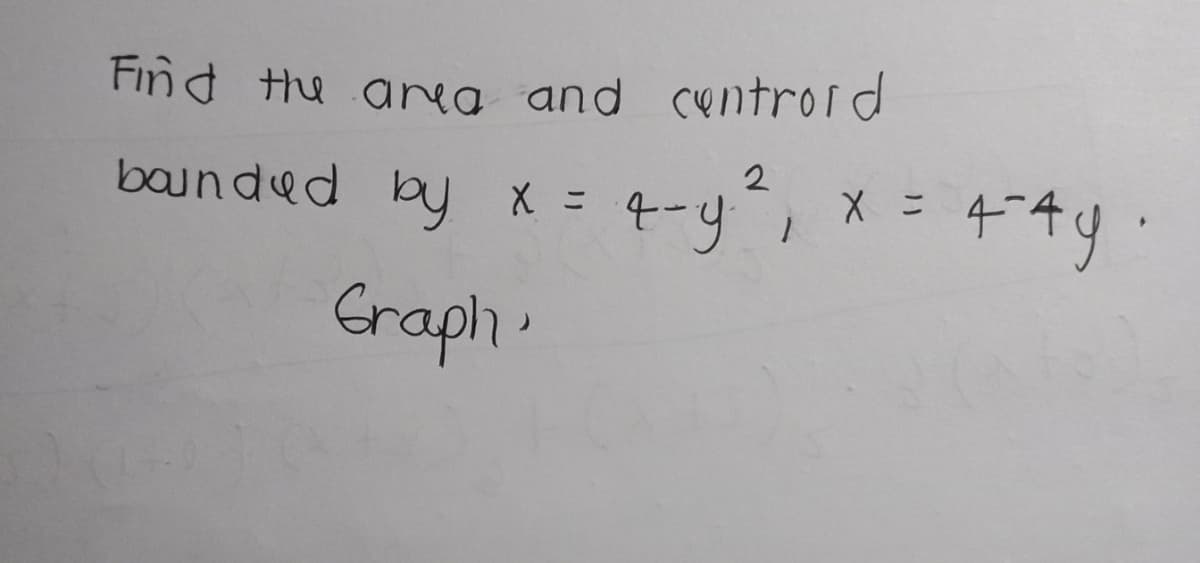 Find the area and centroid
bounded by x = 4-y², x = 4-4y.
Graph.